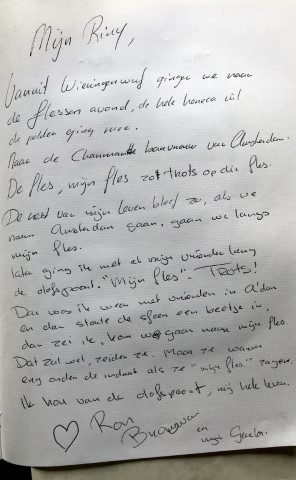 Mijn Riny,
Vanuit Wieringerwerf gingen we naar
de flessen avond, de hele horeca uit
de polder ging mee.
Naar de Charmante bouvrouw van Amsterdam.
De fles, mijn fles zo trots op die fles.
De rest van mijn leven bleef zo, als we
naar Amsterdam gaan, gaan we langs
mijn fles.
Later ging ik met al mijn vrienden langs
de olofspoort. "Mijn fles". Trots!
Dan was ik weer met vrienden in A'dam
en dan stoute de sfeer een beetje in,
dan zei ik, kom we gaan naar mijn fles.
Dat zal wel, zeiden ze. Maar ze waren
erg onder de indruk als ze "mijn fles" zagen.
Ik hou van de olofspoort, mij hele leven.
Ron
en
mijn